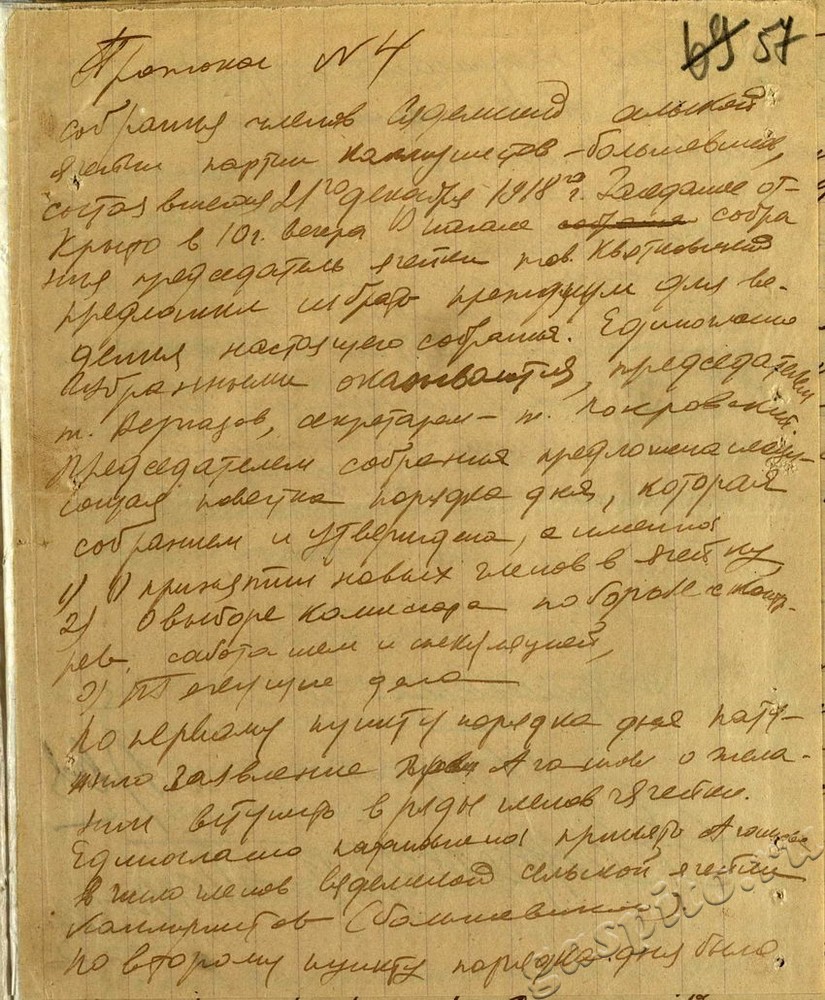 69 57
Протокол № 4
собрания членов сельской
ячейки партии коммунистов-большевиков,
состоявшегося 21го декабря 1918го г. Заседание от-
крыто в 10 г. вечера В начале собрания собра
ния председатель ячейки тов.
предложил избрать президиум для ве-
дения настоящего собрания. Единогласно
избранными оказываются, председателем
т. секретарем - т. Покровский.
Председателем собрания предложена следу-
ющая повестка порядка дня, которая
собранием и утверждена, а именно
1) О принятии новых членов в ячейку
2) О выборе комиссара по борьбе с контр.
рев. саботажем и спекуляцией,
3) Текущие дела
По первому пункту порядка дня посту-
пило заявление о жела-
нии вступить в ряды членов ячейки.
Единогласно постановлено принять
в число членов сельской ячейки
коммунистов (большевиков)
По второму пункту порядка дня было
gaspito.ru